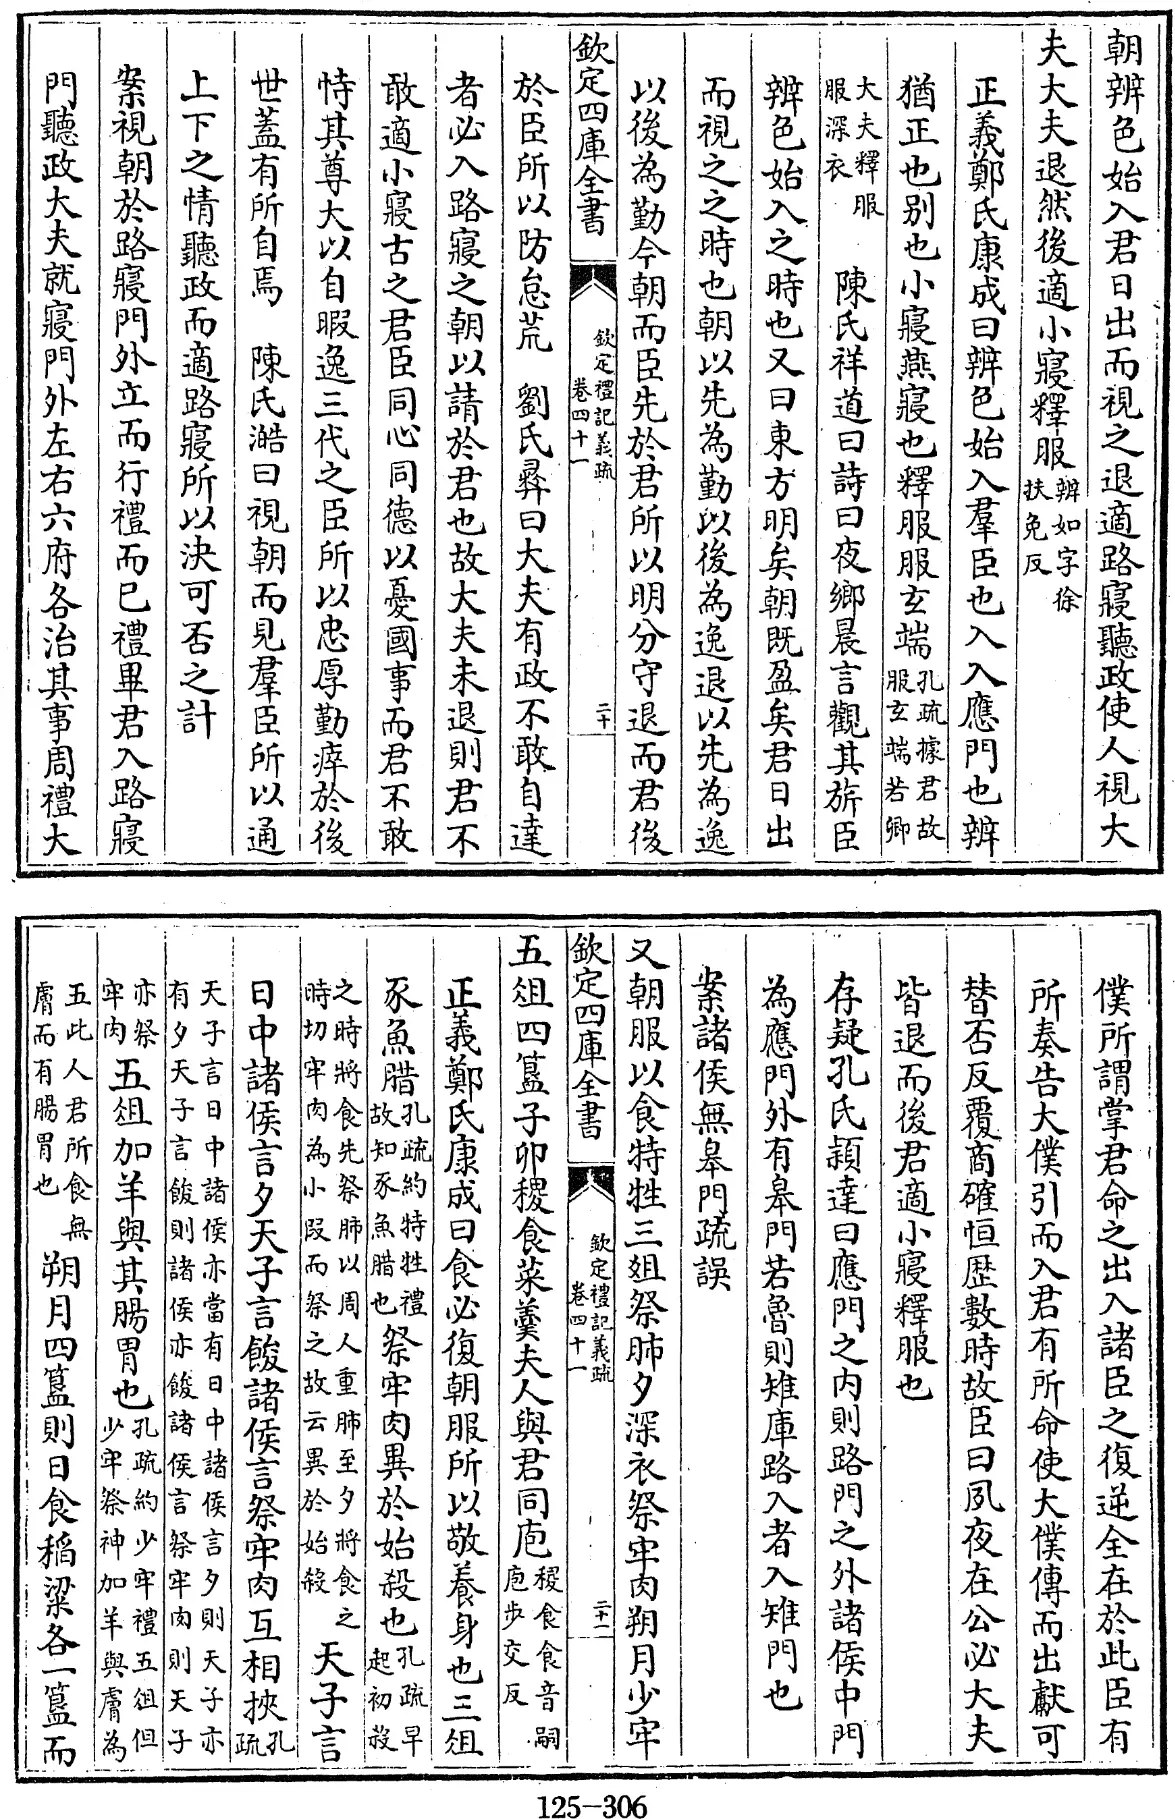 朝辨色始入君日出而視之退適路寢聽政使人視大
夫大夫退然後適小寢釋服辨如字徐扶免反
正義鄭氏康成曰辨色始入羣臣也入入應門也辨
猶正也别也小寢燕寢也釋服服玄端孔疏據君故服玄端若卿
大夫釋服服深衣 陳氏祥道曰詩曰夜鄉晨言觀其旂臣
辨色始入之時也又曰東方明矣朝既盈矣君日出
而視之之時也朝以先為勤以後為逸退以先為逸
以後為勤今朝而臣先於君所以明分守退而君後
欽定四庫全書 欽定禮記義疏卷四十一 二十
於臣所以防怠荒 劉氏彝曰大夫有政不敢自達
者必入路寢之朝以請於君也故大夫未退則君不
敢適小寢古之君臣同心同德以憂國事而君不敢
恃其尊大以自暇逸三代之臣所以忠厚勤瘁於後
世蓋有所自焉 陳氏澔曰視朝而見羣臣所以通
上下之情聽政而適路寢所以決可否之計
案視朝於路寢門外立而行禮而已禮畢君入路寢
門聽政大夫就寢門外左右六府各治其事周禮大
僕所謂掌君命之出入諸臣之復逆全在於此臣有
所奏告大僕引而入君有所命使大僕傳而出獻可
替否反覆商確恒歴數時故臣曰夙夜在公必大夫
皆退而後君適小寢釋服也
存疑孔氏穎達曰應門之内則路門之外諸侯中門
為應門外有皋門若魯則雉庫路入者入雉門也
案諸侯無皋門疏誤
又朝服以食特牲三俎祭肺夕深衣祭牢肉朔月少牢
欽定四庫全書 欽定禮記義疏卷四十一 二十一
五俎四簋子卯稷食菜羹夫人與君同庖稷食食音嗣庖步交反
正義鄭氏康成曰食必復朝服所以敬養身也三俎
豕魚腊孔疏約特牲禮故知豕魚腊也祭牢肉異於始殺也孔疏早起初殺
之時將食先祭肺以周人重肺至夕將食之時切牢肉為小段而祭之故云異於始殺 天子言
日中諸侯言夕天子言餕諸侯言祭牢肉互相挾孔疏
天子言日中諸侯亦當有日中諸侯言夕則天子亦有夕天子言餕則諸侯亦餕諸侯言祭牢肉則天子
亦祭牢肉五俎加羊與其腸胃也孔疏約少牢禮五俎但少牢祭神加羊與膚為
五此人君所食無膚而有腸胃也 朔月四簋則日食稻粱各一簋而
125-306